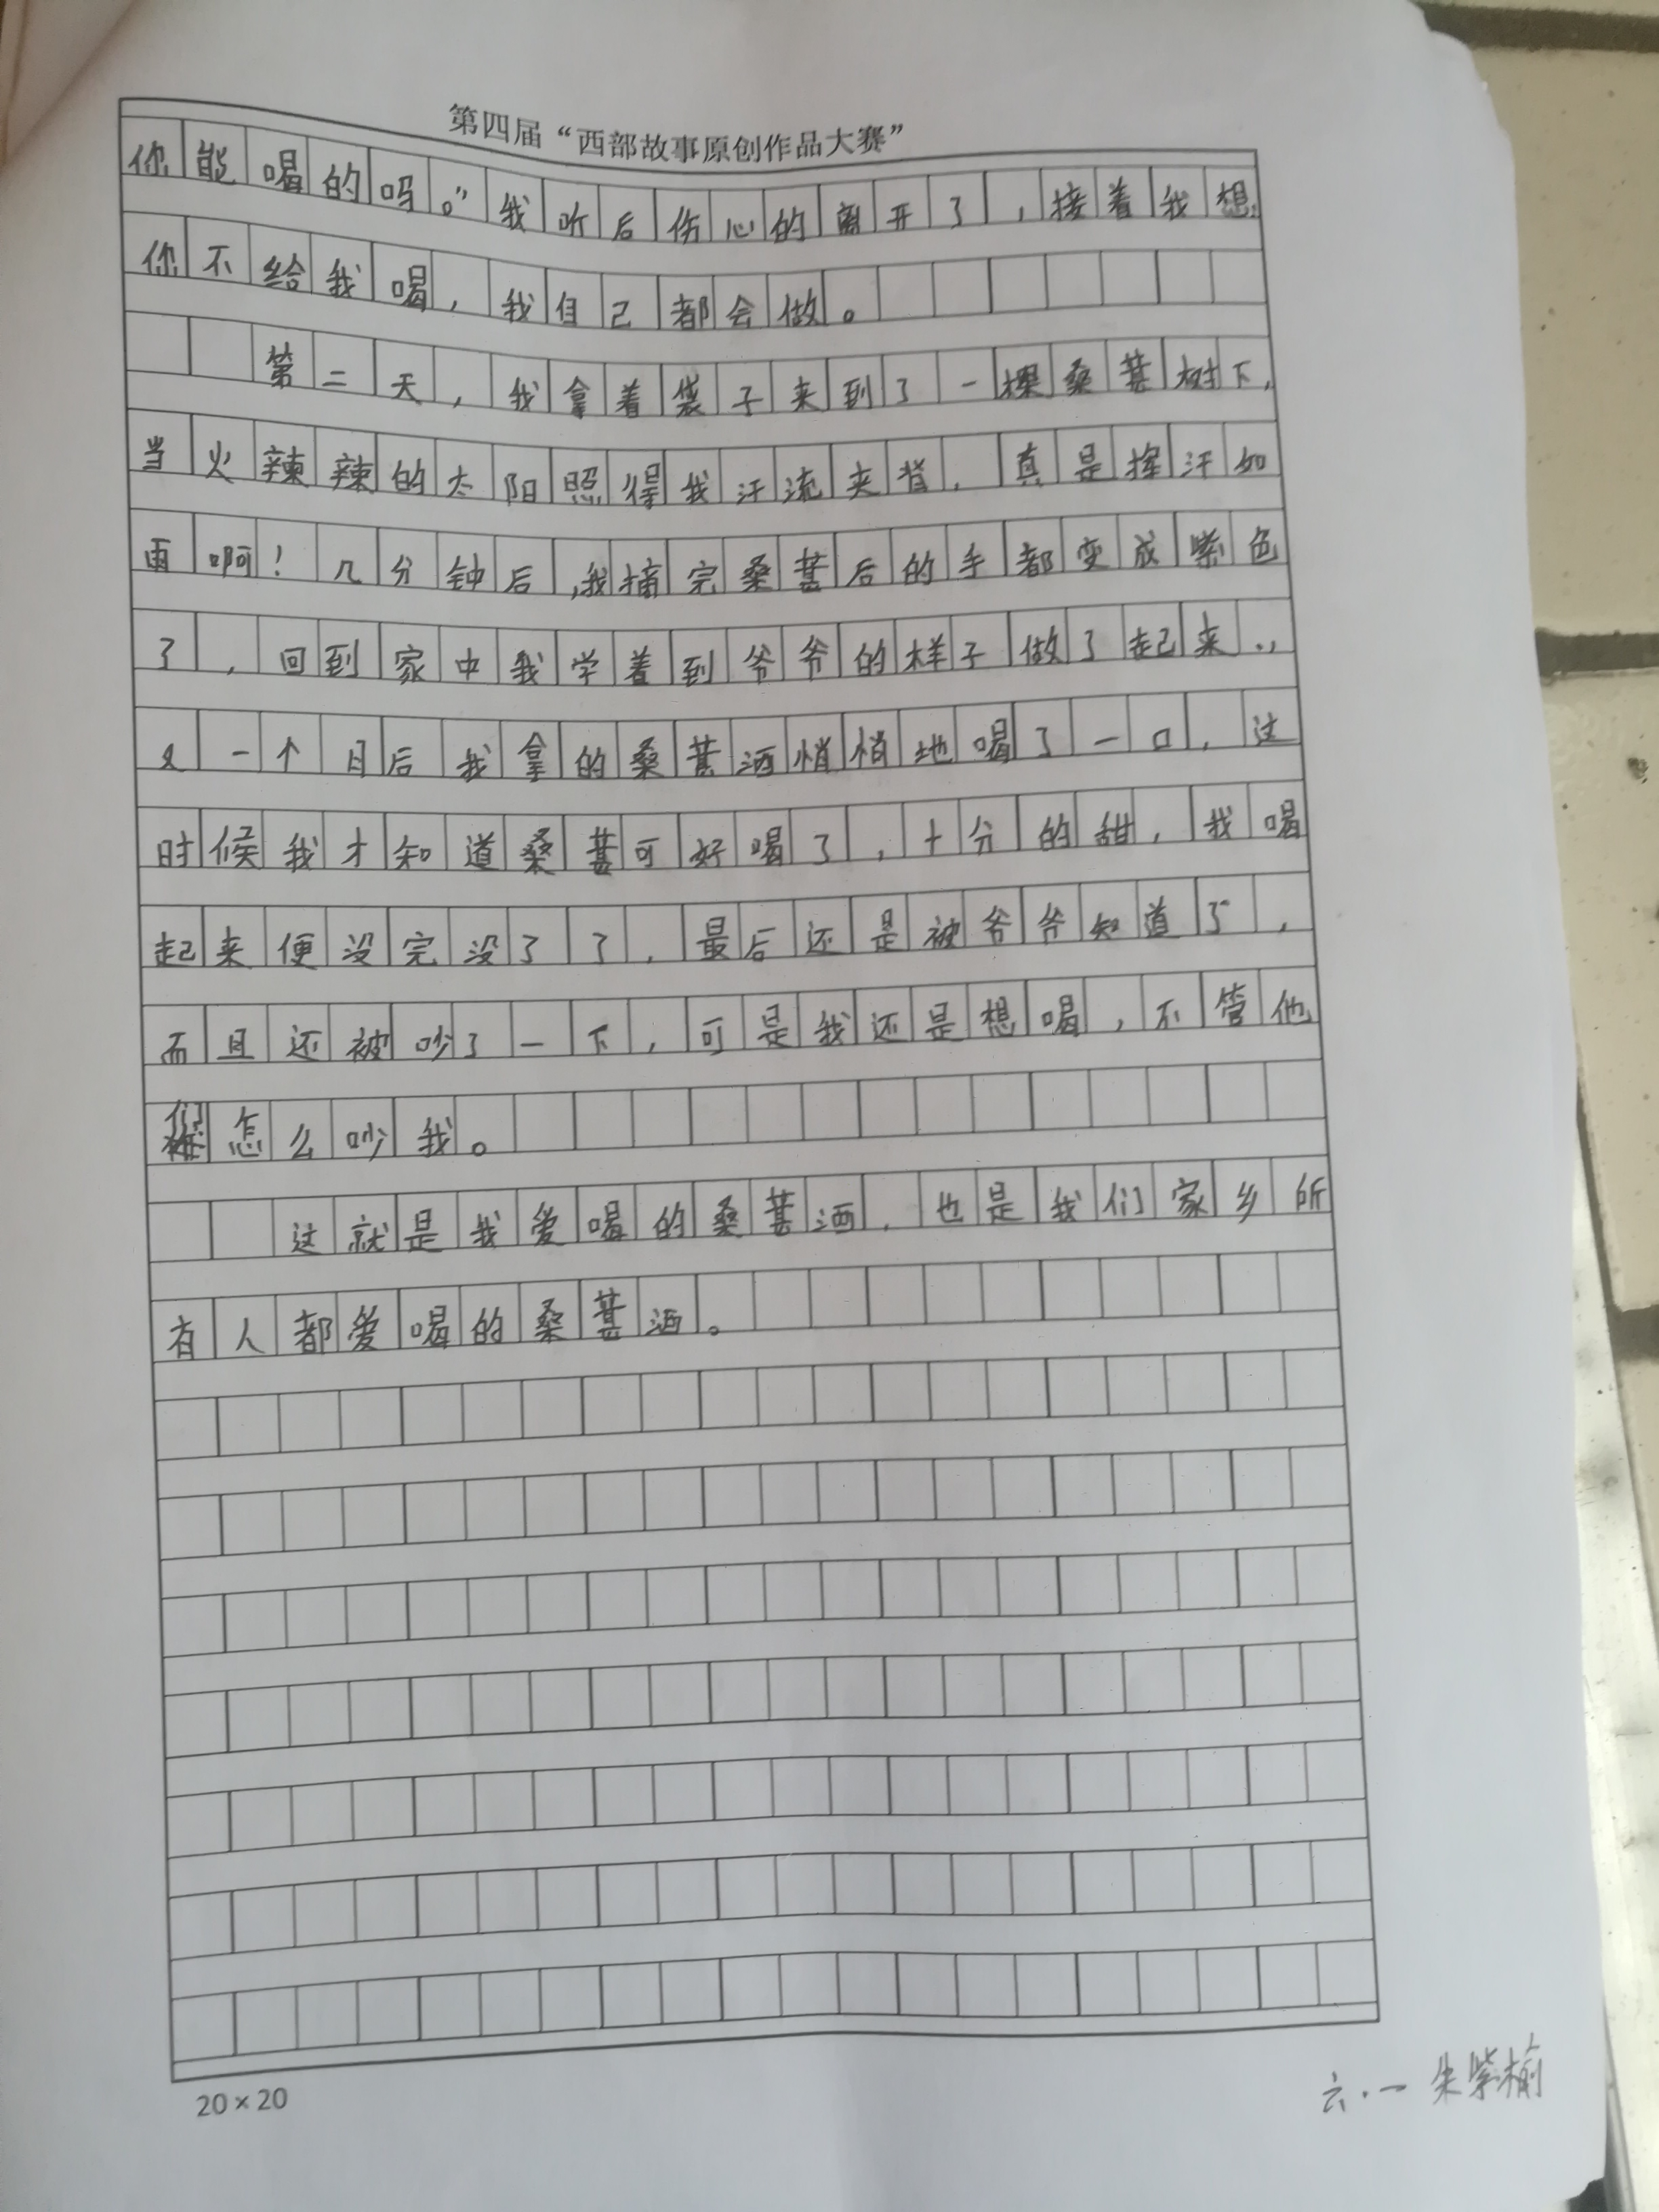 第四届“西部故事原创作品大赛”
你能喝的吗。”我听后伤心的离开了，接着我想，
你不给我喝，我自己都会做。
第二天，我拿着袋子来到了一棵桑葚树下，
当火辣辣的太阳照得我汗流夹背，真是挥汗如
雨啊！几分钟后，我摘完桑葚后的手都变成紫色
了，回到家中我学着到爷爷的样子做了起来.，
又一个月后我拿的桑葚酒悄悄地喝了一口，过
时候我才知道桑葚可好喝了，十分的甜，我喝
起来便没完没了了，最后还是被爷爷知道了，
而且还被吵了一下，可是我还是想喝，不管他
们怎么吵我。
这就是我爱喝的桑葚酒，也是我们家乡所
有人都爱喝的桑葚酒。
20×20
六·一 朱紫榆